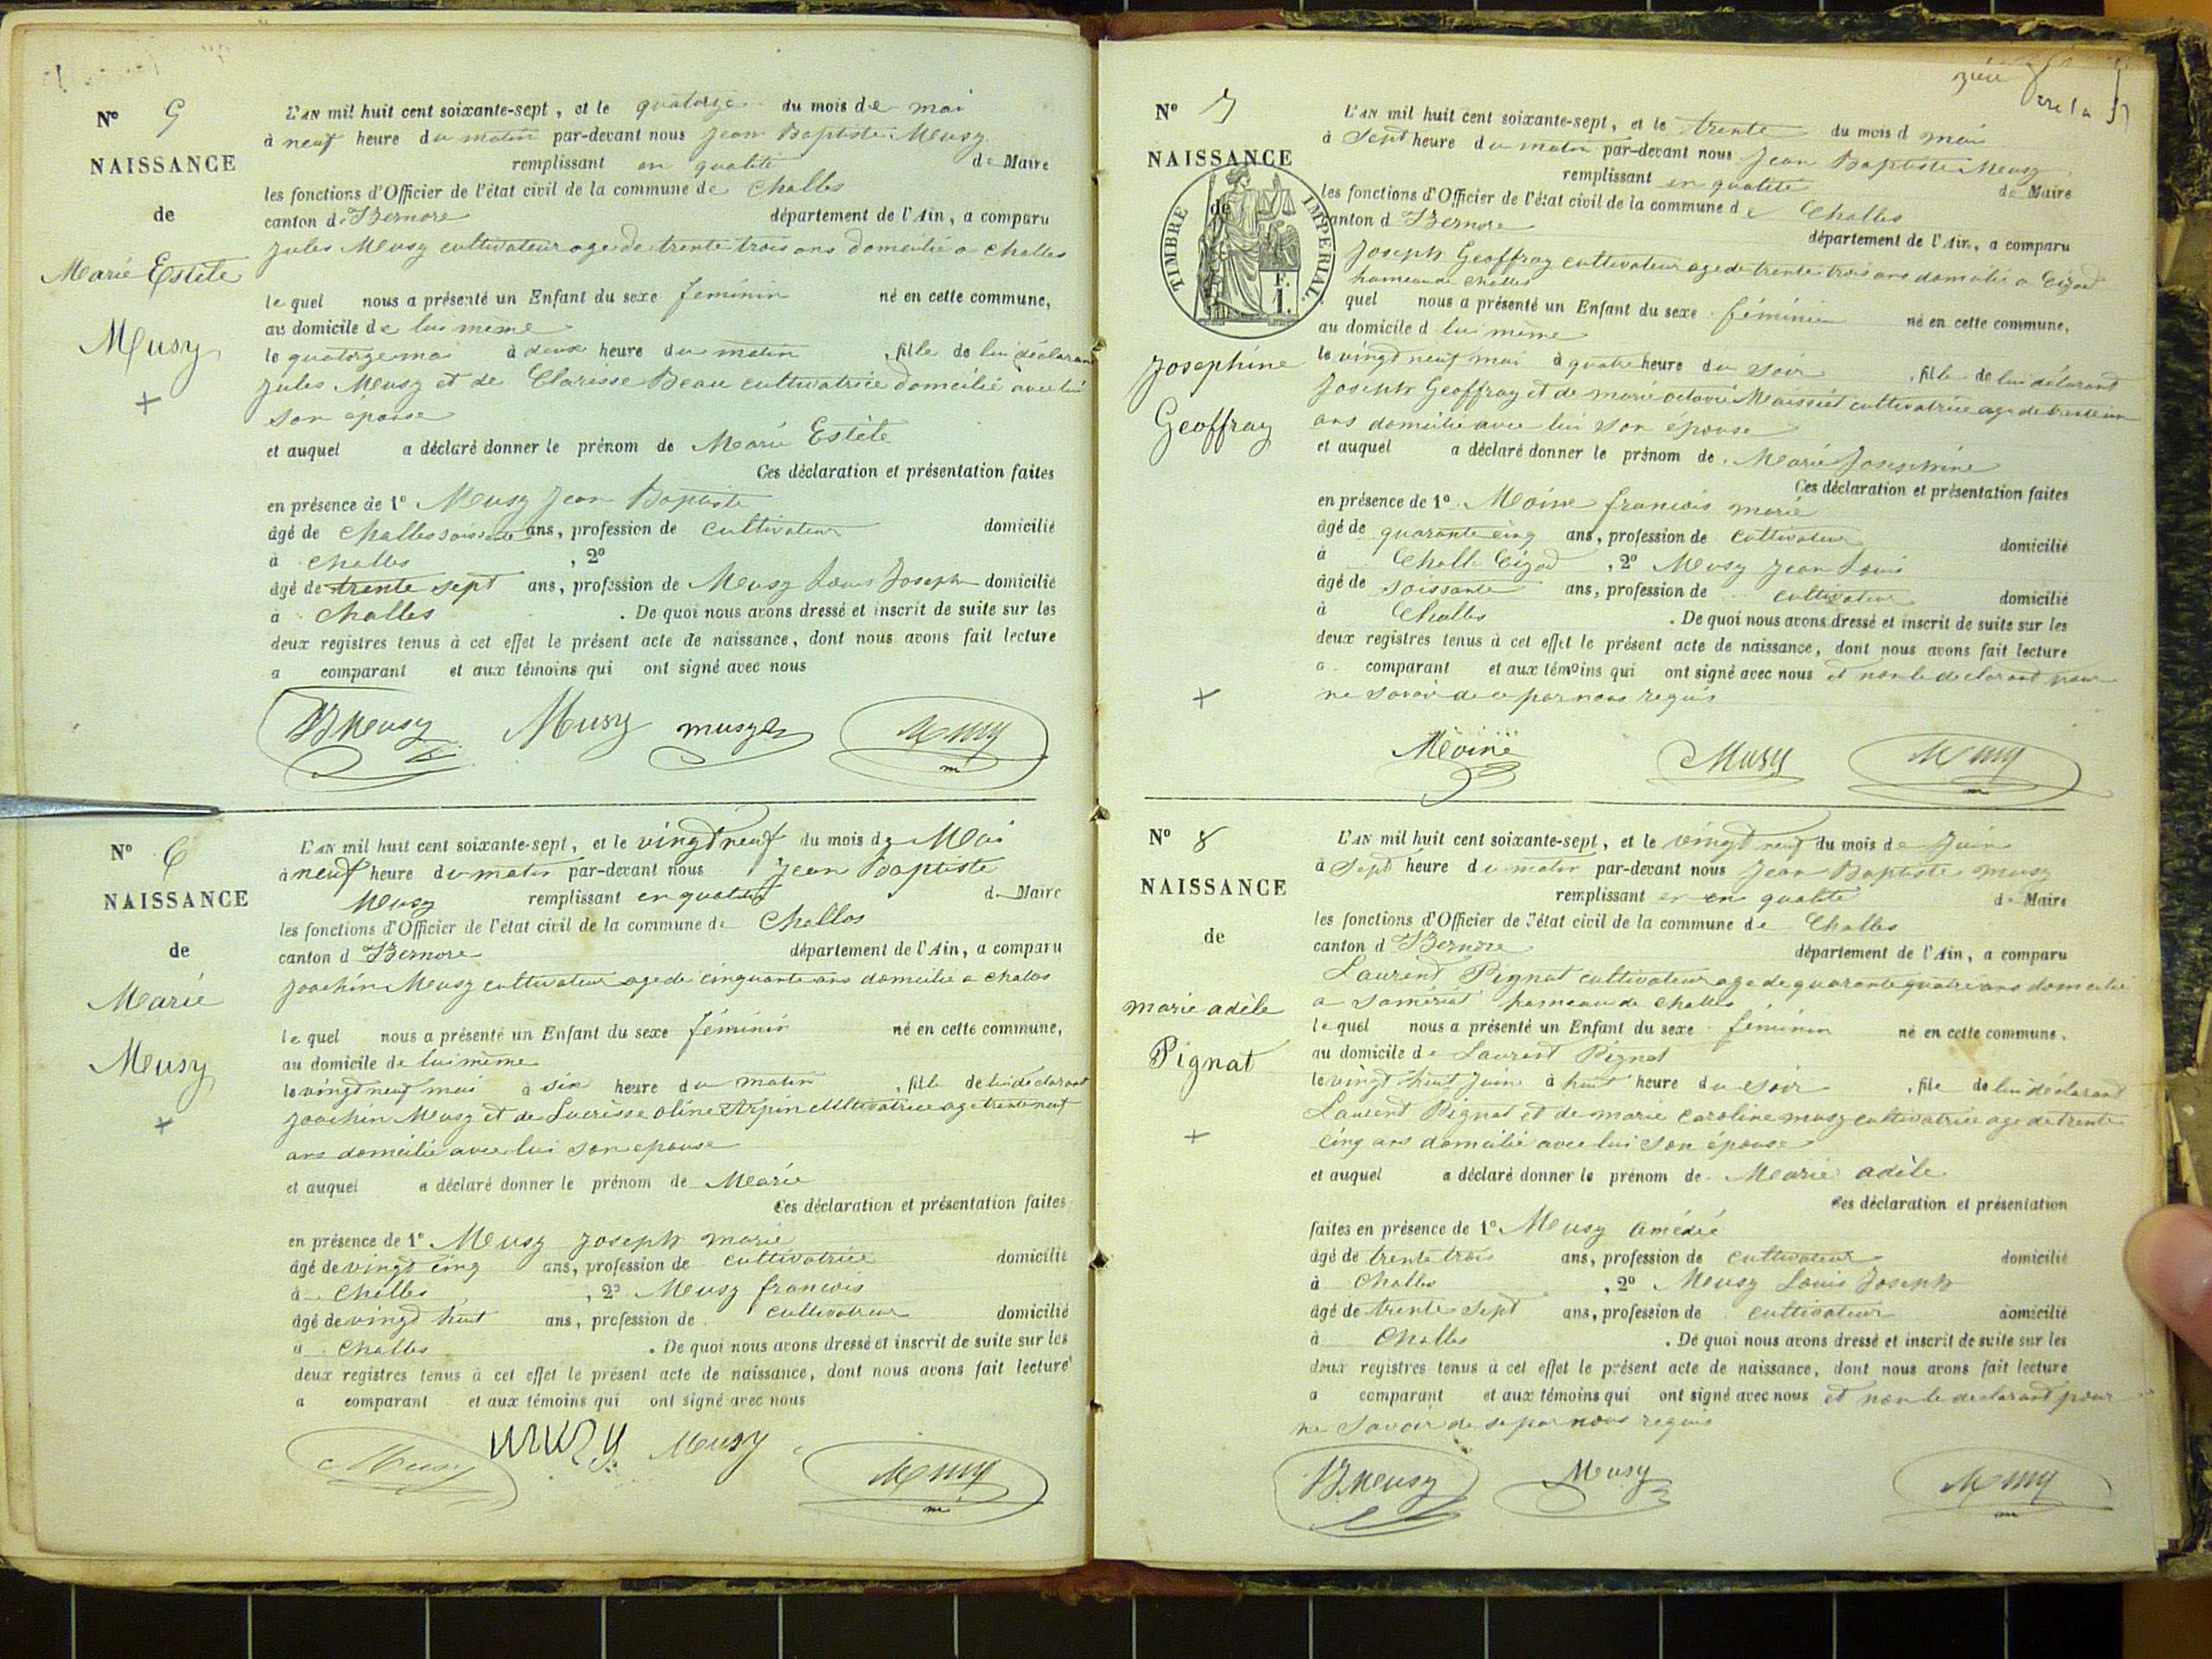 N° 5
NAISSANCE
de
Marie Estele
Musy
+
L'AN mil huit cent soixante-sept, et le quatorze du mois de mai
à neuf heure du matin par-devant nous Jean Baptiste Musy
remplissant en qualité de Maire
les fonctions d'Officier de l'état civil de la commune de Challes
canton d Izernore département de l'Ain, a comparu
Jules Musy cultivateur age de trente trois ans domicilié a Challes
le quel nous a présenté un Enfant du sexe féminin né en cette commune,
au domicile de lui même
le quatorze mai à deux heure du matin , fille de lui déclarant
Jules Musy et de Clarisse Beau cultivatrice domicilié avec lui
son épouse
et auquel a déclaré donner le prénom de Marie Estele
Ces déclaration et présentation faites
en présence de 1° Musy Jean Baptiste
âgé de Challes soissante ans, profession de cultivateur domicilié
à Challes , 2°
âgé de trente sept ans, profession de Musy Louis Joseph domicilié
à Challes . De quoi nous avons dressé et inscrit de suite sur les
deux registres tenus à cet effet le présent acte de naissance, dont nous avons fait lecture
a comparant et aux témoins qui ont signé avec nous
JBMusy Musy musy Musy
N° 6
NAISSANCE
de
Marie
Musy
+
L'AN mil huit cent soixante-sept, et le vingt neuf du mois de Mai
à neuf heure du matin par-devant nous Jean Baptiste
Musy remplissant en qualité de Maire
les fonctions d'Officier de l'état civil de la commune de Challes
canton d Izernore département de l'Ain, a comparu
Joachin Musy cultivateur age de cinquante ans domicilié a Challes
le quel nous a présenté un Enfant du sexe féminin né en cette commune,
au domicile de lui même
le vingt neuf mai à six heure du matin , fille de lui déclarant
Joachin Musy et de Lucrèsse oline Arpin cultivatrice age trente neuf
ans domicilié avec lui son epouse
et auquel a déclaré donner le prénom de Marie
Ces déclaration et présentation faites
en présence de 1° Musy Joseph marie
âgé de vingt cinq ans, profession de cultivatrice domicilié
à Challes , 2° Musy francois
âgé de vingt huit ans, profession de cultivateur domicilié
à Challes . De quoi nous avons dressé et inscrit de suite sur les
deux registres tenus à cet effet le présent acte de naissance, dont nous avons fait lecture
a comparant et aux témoins qui ont signé avec nous
Musy musy Musy Musy
N° 7
NAISSANCE
de
TIMBRE IMPERIAL
F.
1.
Josephine
Geoffray
+
L'AN mil huit cent soixante-sept, et le trente du mois d mai
à Sept heure du matin par-devant nous Jean Baptiste Musy
remplissant en qualité de Maire
les fonctions d'Officier de l'état civil de la commune de Challes
canton d Izernore
département de l'Ain, a comparu
Joseph Geoffray cultivateur age de trente trois ans domicilié a Cizod
hameau de Challes
quel nous a présenté un Enfant du sexe féminin né en cette commune,
au domicile d lui même
le vingt neuf mai à quatre heure du soir , fille de lui déclarant
Joseph Geoffray et de marie octavie Maissiat cultivatrice age de trente un
ans domicilié avec lui son épouse
et auquel a déclaré donner le prénom de Marie Josephine
Ces déclaration et présentation faites
en présence de 1° Moine francois marie
âgé de quarante cinq ans, profession de cultivateur domicilié
à Challe Cizod , 2° Musy Jean Louis
âgé de soissante ans, profession de cultivateur domicilié
à Challes . De quoi nous avons dressé et inscrit de suite sur les
deux registres tenus à cet effet le présent acte de naissance, dont nous avons fait lecture
a comparant et aux témoins qui ont signé avec nous et non le declarant pour
ne savoir de ce par nous requis
Moine Musy Musy
N° 8
NAISSANCE
de
marie adèle
Pignat
+
L'AN mil huit cent soixante-sept, et le vingt neuf du mois de Juin
à Sept heure du matin par-devant nous Jean Baptiste musy
remplissant en qualité de Maire
les fonctions d'Officier de l'état civil de la commune de Challes
canton d Izernore département de l'Ain, a comparu
Laurent Pignat cultivateur age de quarante quatre ans domicilié
a Samériat hameau de Challes
le quel nous a présenté un Enfant du sexe féminin né en cette commune.
au domicile de Laurent Pignat
le vingt huit Juin à huit heure du soir , fille de lui déclarant
Laurent Pignat et de marie caroline musy cultivatrice age de trente
cinq ans domicilié avec lui son épouse
et auquel a déclaré donner le prénom de Marie adèle
Ces déclaration et présentation
faites en présence de 1° Musy Amédée
âgé de trente trois ans, profession de cultivateur domicilié
à Challes , 2° Musy Louis Joseph
âgé de trente sept ans, profession de cultivateur domicilié
à Challes . De quoi nous avons dressé et inscrit de suite sur les
deux registres tenus à cet effet le présent acte de naissance, dont nous avons fait lecture
a comparant et aux témoins qui ont signé avec nous et non le declarant pour
ne savoir de se par nous requis
JBMusy Musy Musy